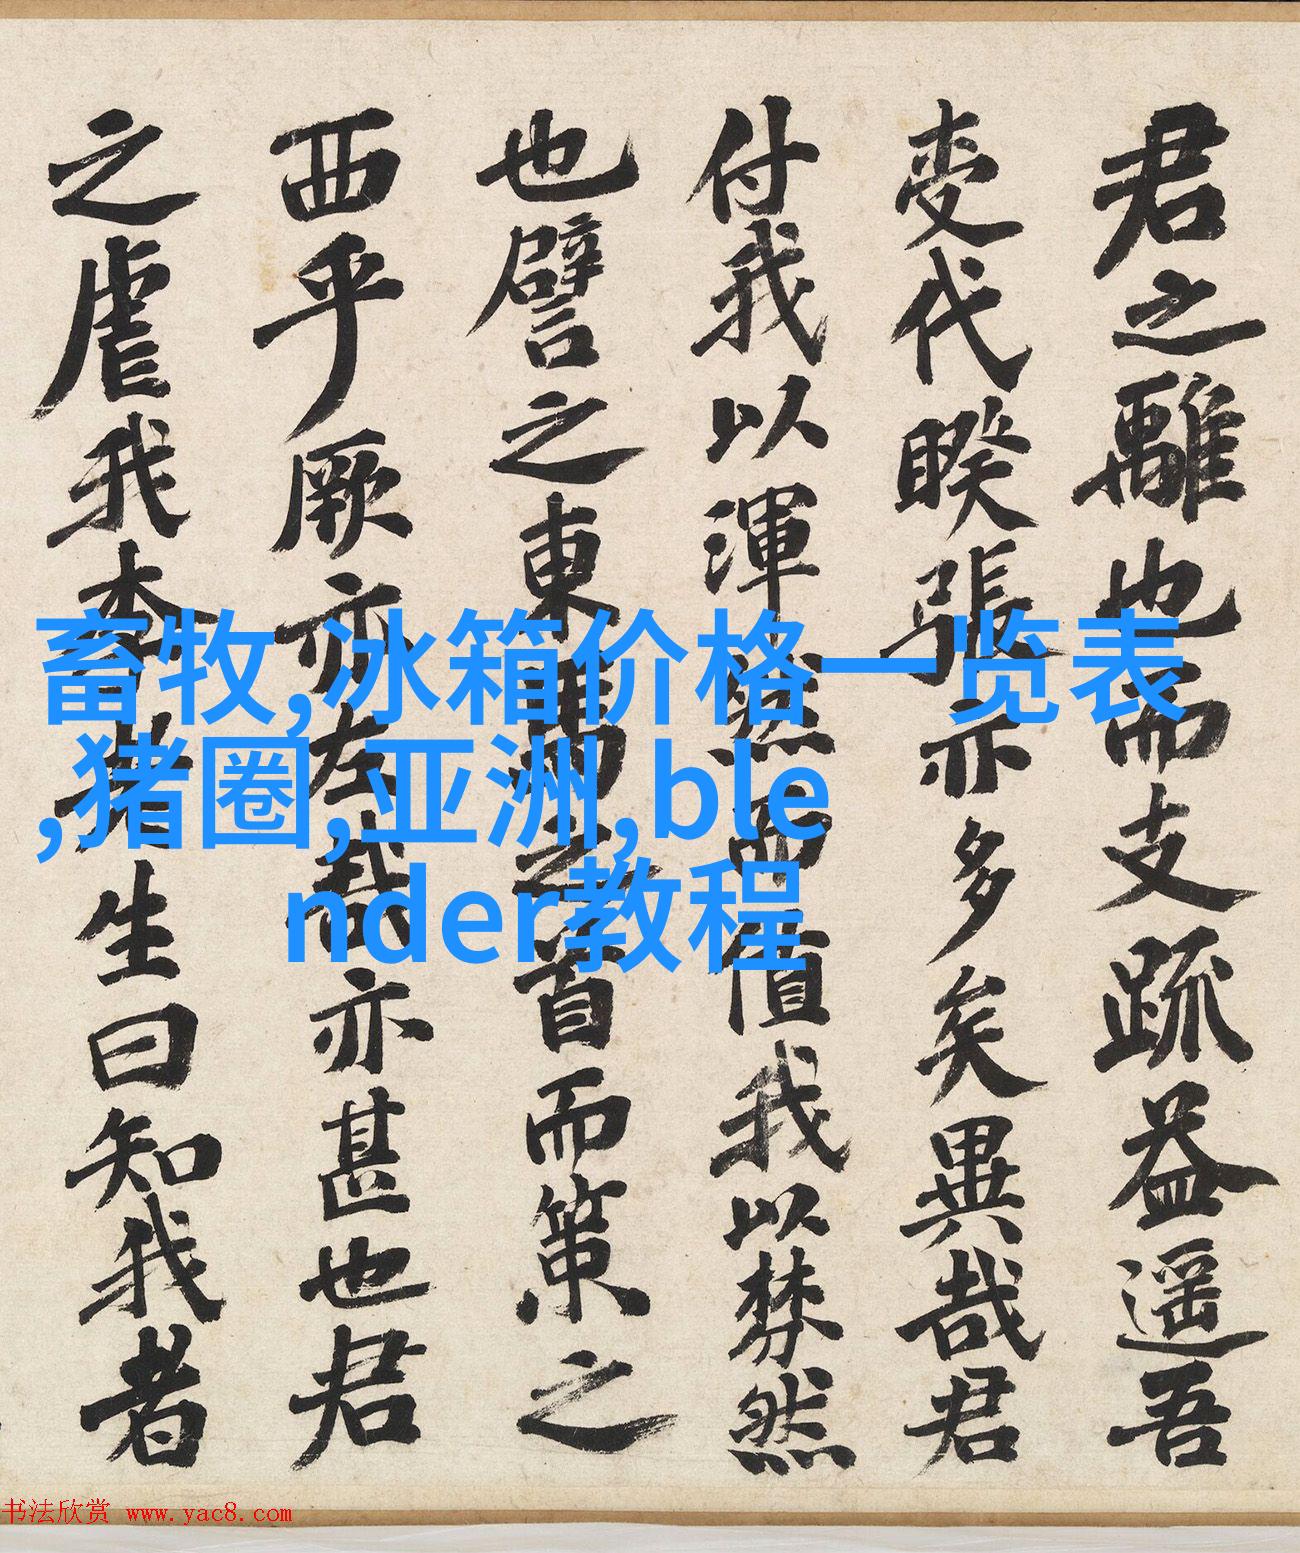 君之離也而支疏益遥吾
代睽張亦多矣異哉君
付我以渾然而值我以棼然
也譬之東之首而策之
西乎厥亦左哉亦甚也君
之虐我生曰知我者
畜牧,冰箱价格一览表
,猪圈,亚洲,ble
nder教程
书法欣赏 www.yac8.com